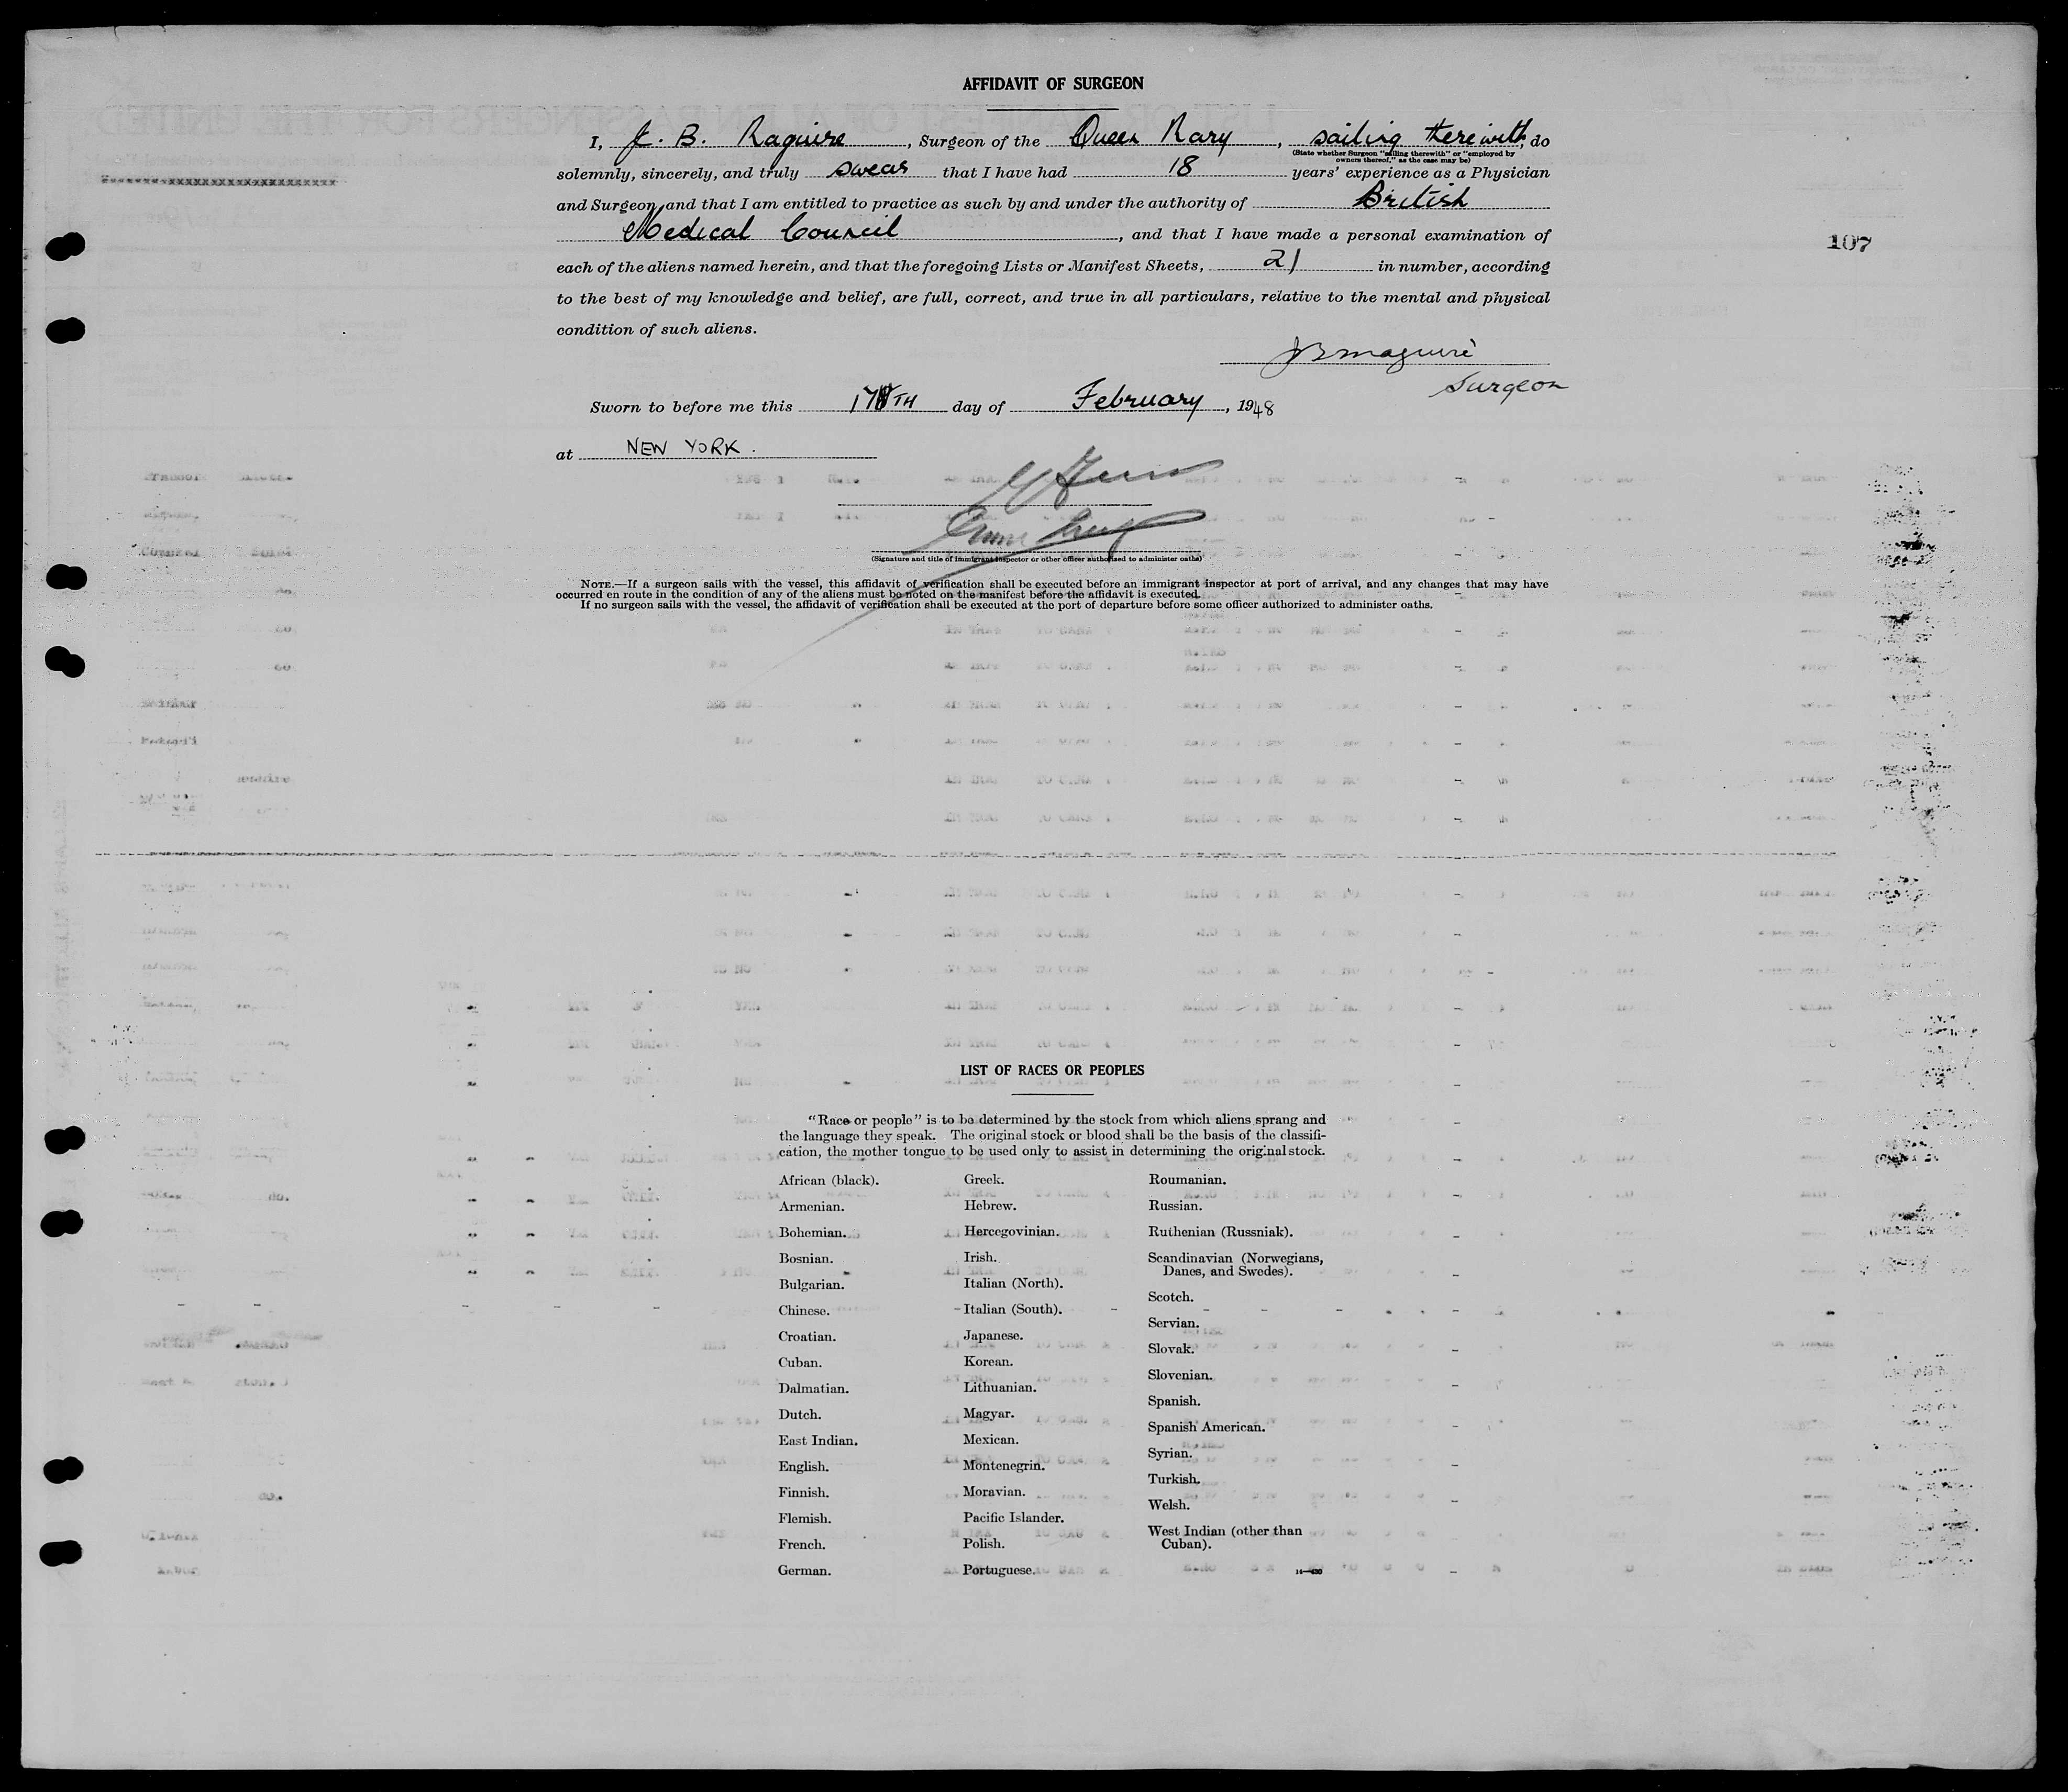 AFFIDAVIT OF SURGEON
I, J. B. Maguire, Surgeon of the Queen Mary, sailing therewith, do
(State whether Surgeon "sailing therewith" or "employed by
owners thereof," as the case may be)
solemnly, sincerely, and truly swear that I have had 18 years' experience as a Physician
and Surgeon and that I am entitled to practice as such by and under the authority of British
Medical Council, and that I have made a personal examination of
107
each of the aliens named herein, and that the foregoing Lists or Manifest Sheets, 21 in number, according
to the best of my knowledge and belief, are full, correct, and true in all particulars, relative to the mental and physical
condition of such aliens.
JBMaguire
Surgeon
Sworn to before me this TH day of February, 1948
at NEW YORK.
(Signature and title of immigrant inspector or other officer authorized to administer oaths)
NOTE.—If a surgeon sails with the vessel, this affidavit of verification shall be executed before an immigrant inspector at port of arrival, and any changes that may have
occurred en route in the condition of any of the aliens must be noted on the manifest before the affidavit is executed.
If no surgeon sails with the vessel, the affidavit of verification shall be executed at the port of departure before some officer authorized to administer oaths.
LIST OF RACES OR PEOPLES
"Race or people" is to be determined by the stock from which aliens sprang and
the language they speak. The original stock or blood shall be the basis of the classifi-
cation, the mother tongue to be used only to assist in determining the original stock.
African (black).
Armenian.
Bohemian.
Bosnian.
Bulgarian.
Chinese.
Croatian.
Cuban.
Dalmatian.
Dutch.
East Indian.
English.
Finnish.
Flemish.
French.
German.
Greek.
Hebrew.
Hercegovinian.
Irish.
Italian (North).
Italian (South).
Japanese.
Korean.
Lithuanian.
Magyar.
Mexican.
Montenegrin.
Moravian.
Pacific Islander.
Polish.
Portuguese.
Roumanian.
Russian.
Ruthenian (Russniak).
Scandinavian (Norwegians,
Danes, and Swedes).
Scotch.
Servian.
Slovak.
Slovenian.
Spanish.
Spanish American.
Syrian.
Turkish.
Welsh.
West Indian (other than
Cuban).